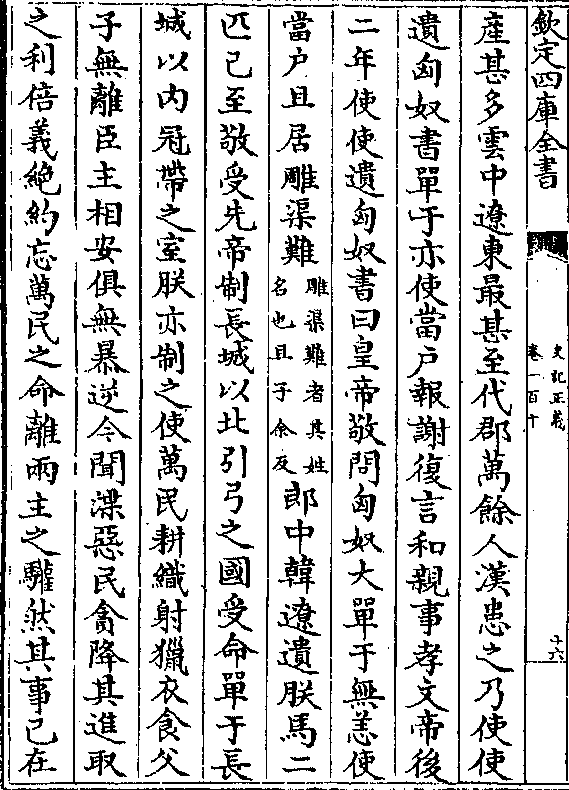 欽定四庫全書
史記正義
卷一百十
十六
産甚多雲中遼東最甚至代郡萬餘人漢患之乃使使
遺匈奴書單于亦使當户報謝復言和親事孝文帝後
二年使使遺匈奴書曰皇帝敬問匈奴大單于無恙使
當户且居雕渠難雕渠難者其姓名也且子余反郎中韓遼遺朕馬二
匹已至敬受先帝制長城以北引弓之國受命單于長
城以内冠帶之室朕亦制之使萬民耕織射獵衣食父
子無離臣主相安俱無暴逆今聞渫惡民貪降其進取
之利倍義絶約忘萬民之命離兩主之驩然其事已在